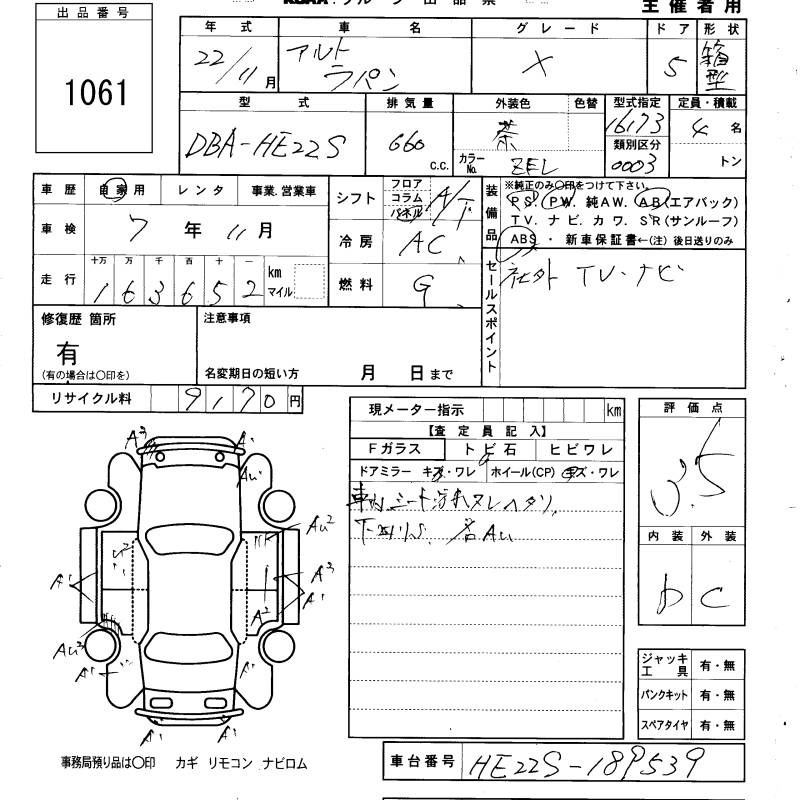 出品番号
1061
主催者用
年式 車名 グレード ドア 形状
22/11月 アルトラパン X 5 箱型
型式 排気量 外装色 色替 型式指定 定員・積載
DBA-HE22S 660 c.c. 茶 16173 4名
カラーNo. ZEL 類別区分 0003 トン
車歴 自家用 レンタ 事業.営業車
車検 7年11月
走行 十万 万 千 百 十 一
163652 km マイル
シフト フロア コラム パネル A/T
冷房 AC
燃料 G
装備品
※純正のみ〇印をつけて下さい。
PS. PW. 純AW. AB(エアバック)
TV. ナビ. カワ. SR(サンルーフ)
ABS ・ 新車保証書←(注) 後日送りのみ
セールスポイント
社外 TV・ナビ
修復歴 箇所
有
(有の場合は〇印を)
注意事項
名変期日の短い方 月 日まで
リサイクル料 9170円
現メーター指示 km
【査定員記入】
Fガラス トビ石 ヒビワレ
ドアミラー キズ・ワレ ホイール(CP) キズ・ワレ
車内シート汚れスレヘタリ
各AU
評価点
3.5
内装 外装
b C
A3 A1
AU1
AU2
A3
A1
A2
A1
AU3
A1
A1
A1 A1
ジャッキ工具 有・無
パンクキット 有・無
スペアタイヤ 有・無
事務局預り品は〇印 カギ リモコン ナビロム
車台番号 HE22S-189539